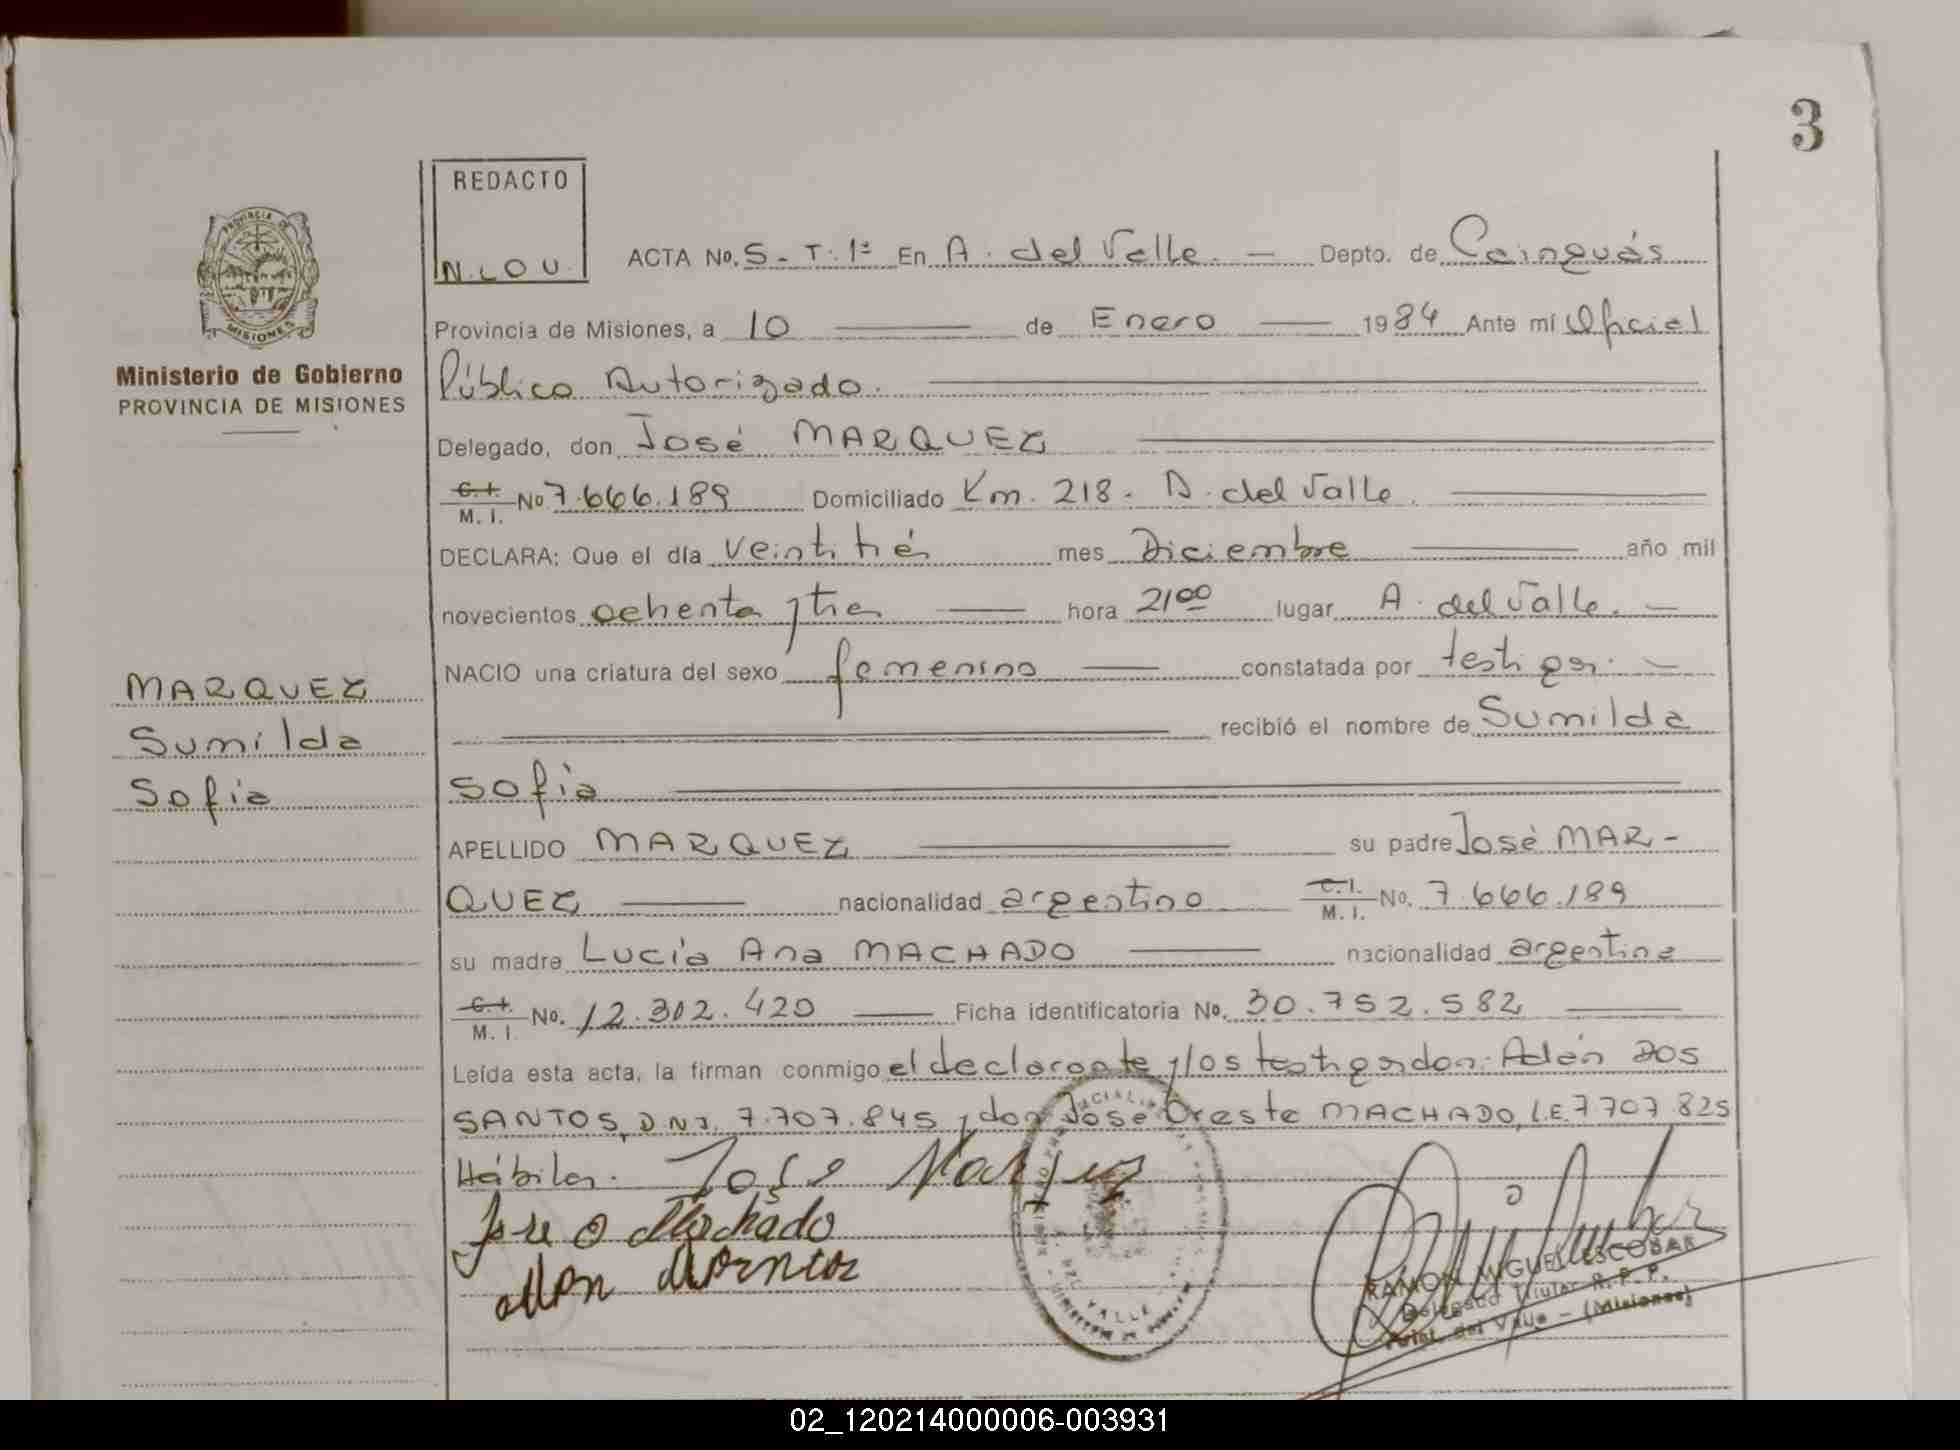 3
REDACTO
N. LOU.
PROVINCIA DE
MISIONES
Ministerio de Gobierno
PROVINCIA DE MISIONES
ACTA No. 5 - T. 1ª En A. del Valle. — Depto. de Cainguás
Provincia de Misiones, a 10 — de Enero — 1984 Ante mí Oficial
Público Autorizado.
Delegado, don José MARQUEZ
C.I. M. I. No 7.666.189 Domiciliado Km. 218. A. del Valle.
DECLARA: Que el día veintitrés mes Diciembre — año mil
novecientos ochenta y tres — hora 21⁰⁰ lugar A. del Valle. —
NACIO una criatura del sexo femenino — constatada por testigos. —
recibió el nombre de Sumilda
Sofia
APELLIDO MARQUEZ — su padre José MAR-
QUEZ — nacionalidad argentino C.I. M. I. No. 7.666.189
su madre Lucía Ana MACHADO — nacionalidad argentina
C.I. M. I. No. 12.302.420 — Ficha identificatoria No. 30.752.582 —
Leída esta acta, la firman conmigo el declarante y los testigos don: Adán DOS
SANTOS, D.N.I. 7.707.845 y don José Oreste MACHADO, L.E. 7.707.825
Hábiles. José Marquez
Jose O Machado
RAMON MIGUEL ESCOBAR
Delegado Titular R. P. P.
Arist. del Valle - (Misiones)
DEL VALLE
MARQUEZ
Sumilda
Sofia
02_120214000006-003931